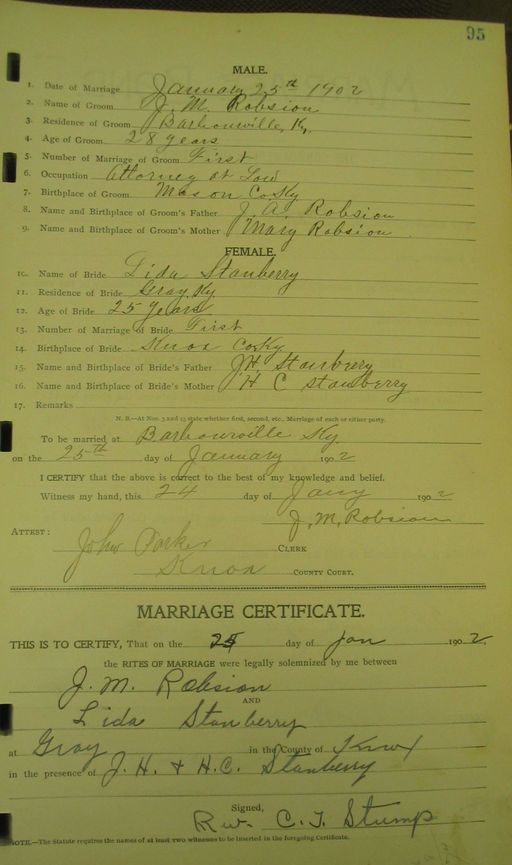 95
MALE.
1. Date of Marriage January 25th 1902
2. Name of Groom J. M. Robsion
3. Residence of Groom Barbourville, Ky,
4. Age of Groom 28 years
5. Number of Marriage of Groom First
6. Occupation Attorney at Law
7. Birthplace of Groom Mason Co Ky
8. Name and Birthplace of Groom's Father J. A. Robsion
9. Name and Birthplace of Groom's Mother Mary Robsion
FEMALE.
10. Name of Bride Lida Stanberry
11. Residence of Bride Gray Ky
12. Age of Bride 25 years
13. Number of Marriage of Bride First
14. Birthplace of Bride Knox Co Ky
15. Name and Birthplace of Bride's Father J H Stanberry
16. Name and Birthplace of Bride's Mother H C Stanberry
17. Remarks
N. B.—At Nos. 5 and 13 state whether first, second, etc., Marriage of each or either party.
To be married at Barbourville Ky
on the 25th day of January 1902
I CERTIFY that the above is correct to the best of my knowledge and belief.
Witness my hand, this 24 day of Jany 1902
J, M, Robsion
ATTEST: John Parker CLERK
Knox COUNTY COURT.
MARRIAGE CERTIFICATE.
THIS IS TO CERTIFY, That on the 25 day of Jan 1902.
the RITES OF MARRIAGE were legally solemnized by me between
J. M. Robsion
AND
Lida Stanberry
at Gray in the County of Knox
in the presence of J. H. & H. C. Stanberry
Signed,
Rev. C. T. Stump
NOTE.—The Statute requires the names of at least two witnesses to be inserted in the foregoing Certificate.